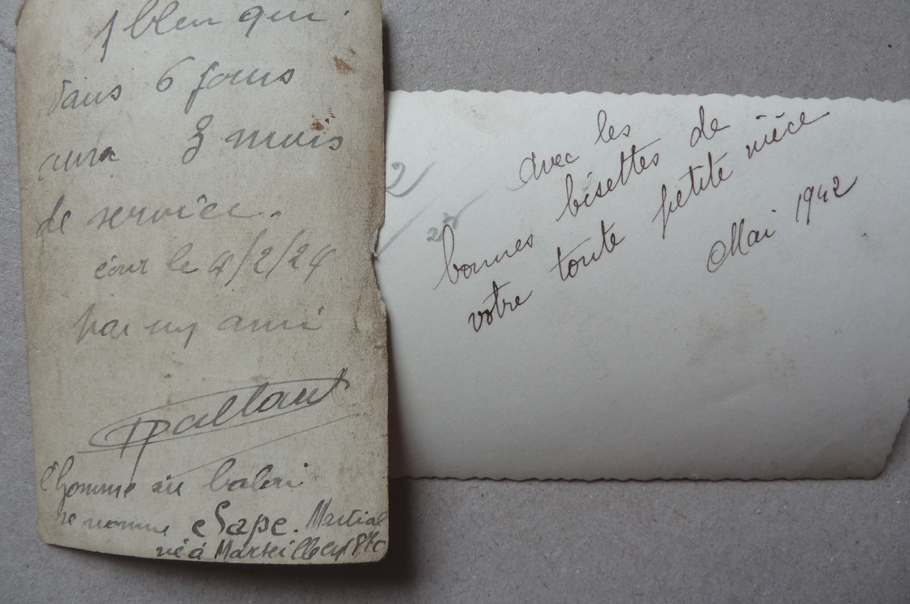 1 bleu qui
dans 6 jours
aura 3 mois
de service.
écrit le 4/2/24
par un ami
l'homme au balai
se nomme Sape. Martial
né à Marseille
2
25
avec les
bonnes bisettes de
votre toute petite nièce
Mai 1942